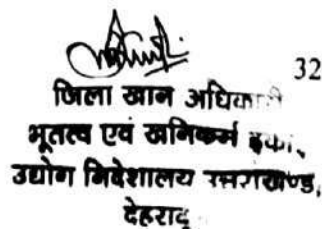 32
जिला खान अधिकारी
भूतत्व एवं खनिकर्म इकाई,
उद्योग निदेशालय उत्तराखण्ड,
देहरादू